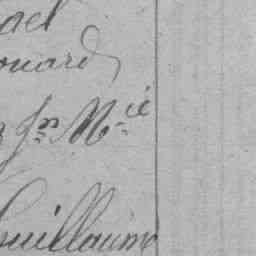 ael
ouard
Jn Mie
Guillaume